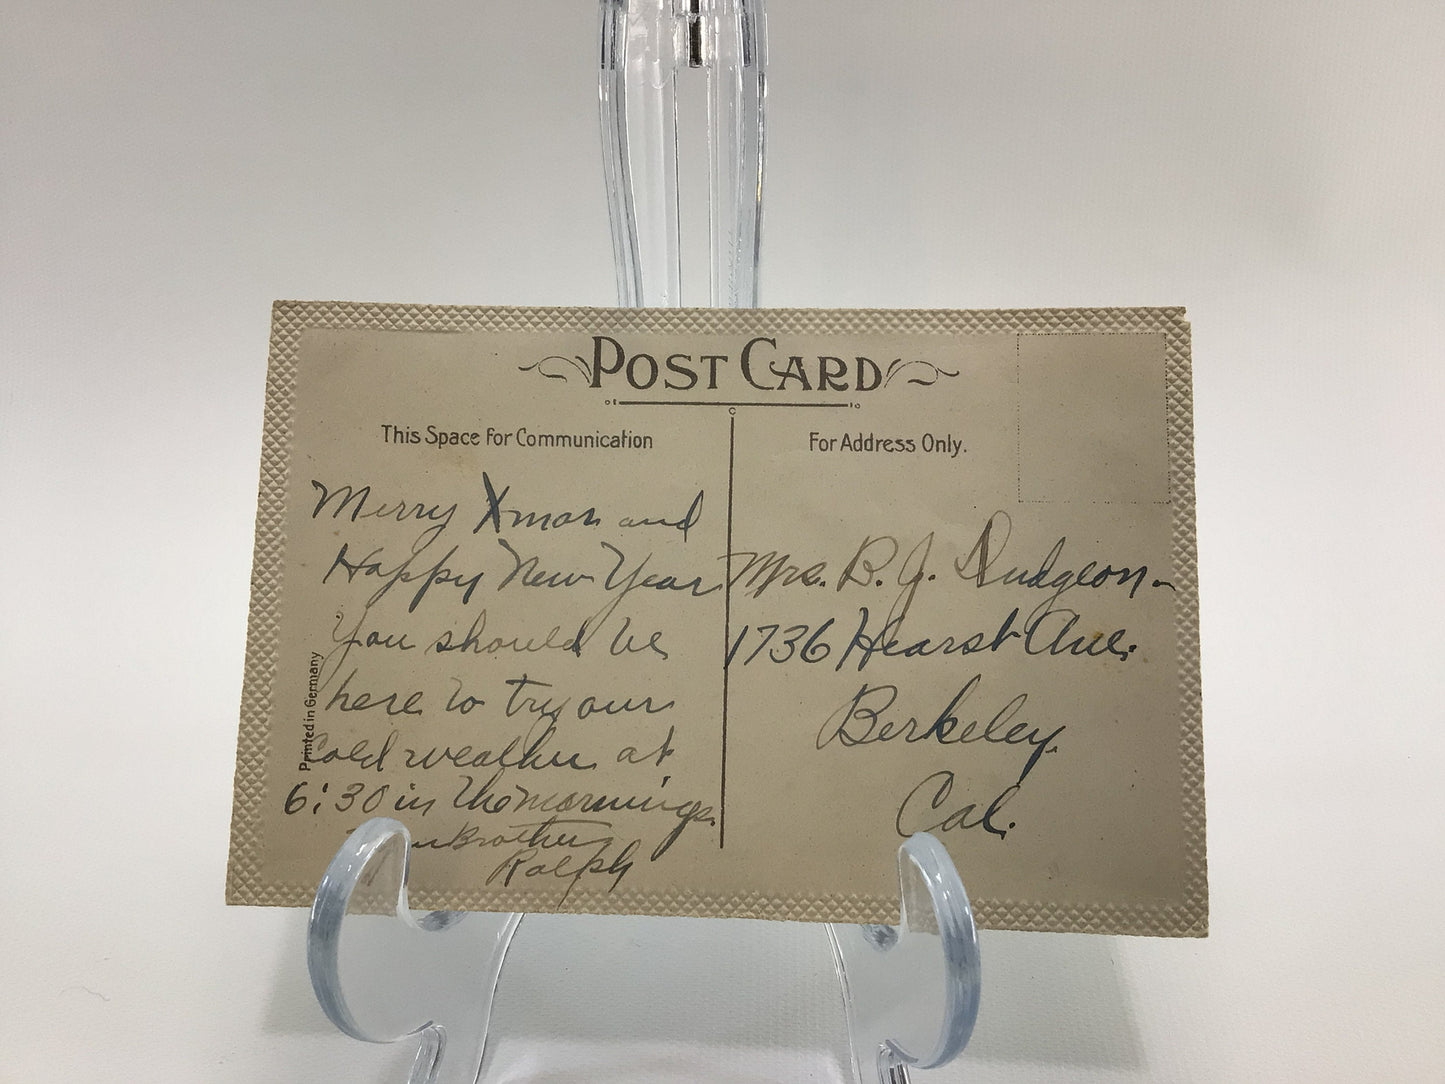 POST CARD
This Space For Communication
For Address Only.
Merry Xmas and
Happy New Year
You should be
here to try our
cold weather at
6:30 in the mornings.
Brother
Ralph
Mrs. B. J. Dudgeon
1736 Hearst Ave.
Berkeley.
Cal.
Printed in Germany